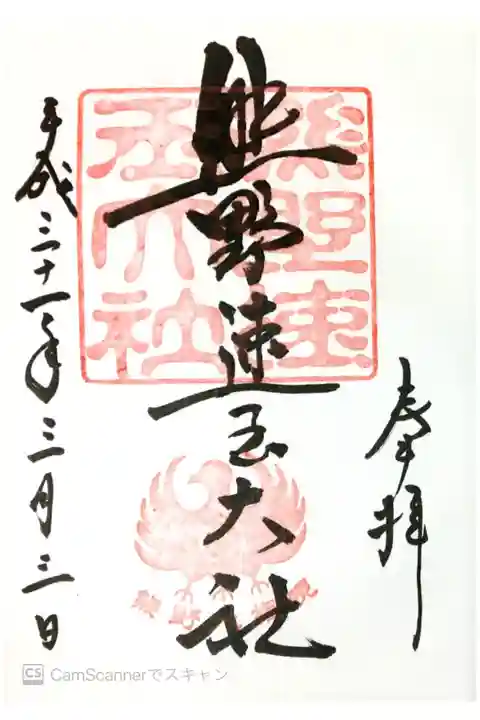 奉拝
熊野速玉大社
熊野速
玉大社
平成三十一年三月三日
CamScannerでスキャン